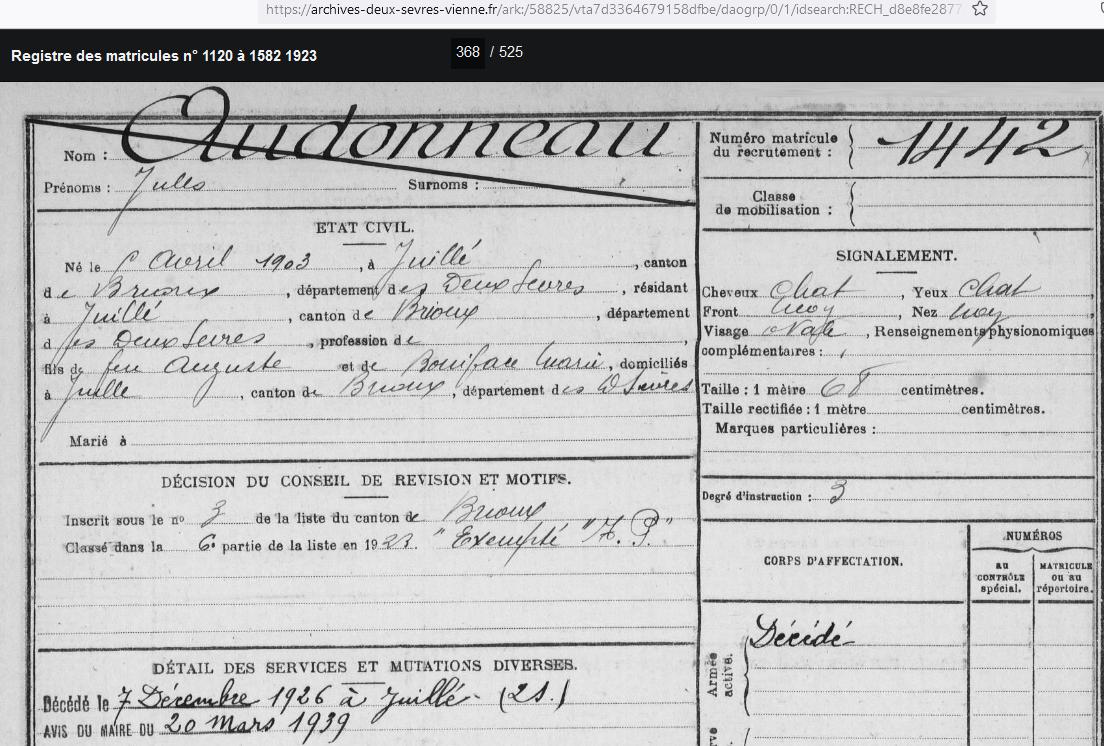 https://archives-deux-sevres-vienne.fr/ark:/58825/vta7d3364679158dfbe/daogrp/0/1/idsearch:RECH_d8e8fe2877
Registre des matricules n° 1120 à 1582 1923
368 / 525
Nom : Audonneau
Prénoms : Jules Surnoms :
Numéro matricule du recrutement : 1442
Classe de mobilisation :
ETAT CIVIL.
Né le 6 Avril 1903, à Juillé, canton
de Brioux, département des Deux Sevres, résidant
à Juillé, canton de Brioux, département
des Deux Sevres, profession de
fils de feu Auguste et de Boniface Marie, domiciliés
à Juillé, canton de Brioux, département des D Sevres
Marié à
SIGNALEMENT.
Cheveux chat, Yeux chat,
Front moy, Nez moy,
Visage Ovale, Renseignements physionomiques
complémentaires :
Taille : 1 mètre 68 centimètres.
Taille rectifiée : 1 mètre centimètres.
Marques particulières :
Degré d'instruction : 3
DÉCISION DU CONSEIL DE REVISION ET MOTIFS.
Inscrit sous le n° 3 de la liste du canton de Brioux
Classé dans la 6e partie de la liste en 1923. "Exempté"
DÉTAIL DES SERVICES ET MUTATIONS DIVERSES.
Décédé le 7 Décembre 1926 à Juillé (2S.)
AVIS DU MAIRE DU 20 Mars 1939
CORPS D'AFFECTATION.
NUMÉROS
AU CONTRÔLE spécial.
MATRICULE ou au répertoire.
Armée active.
Décédé